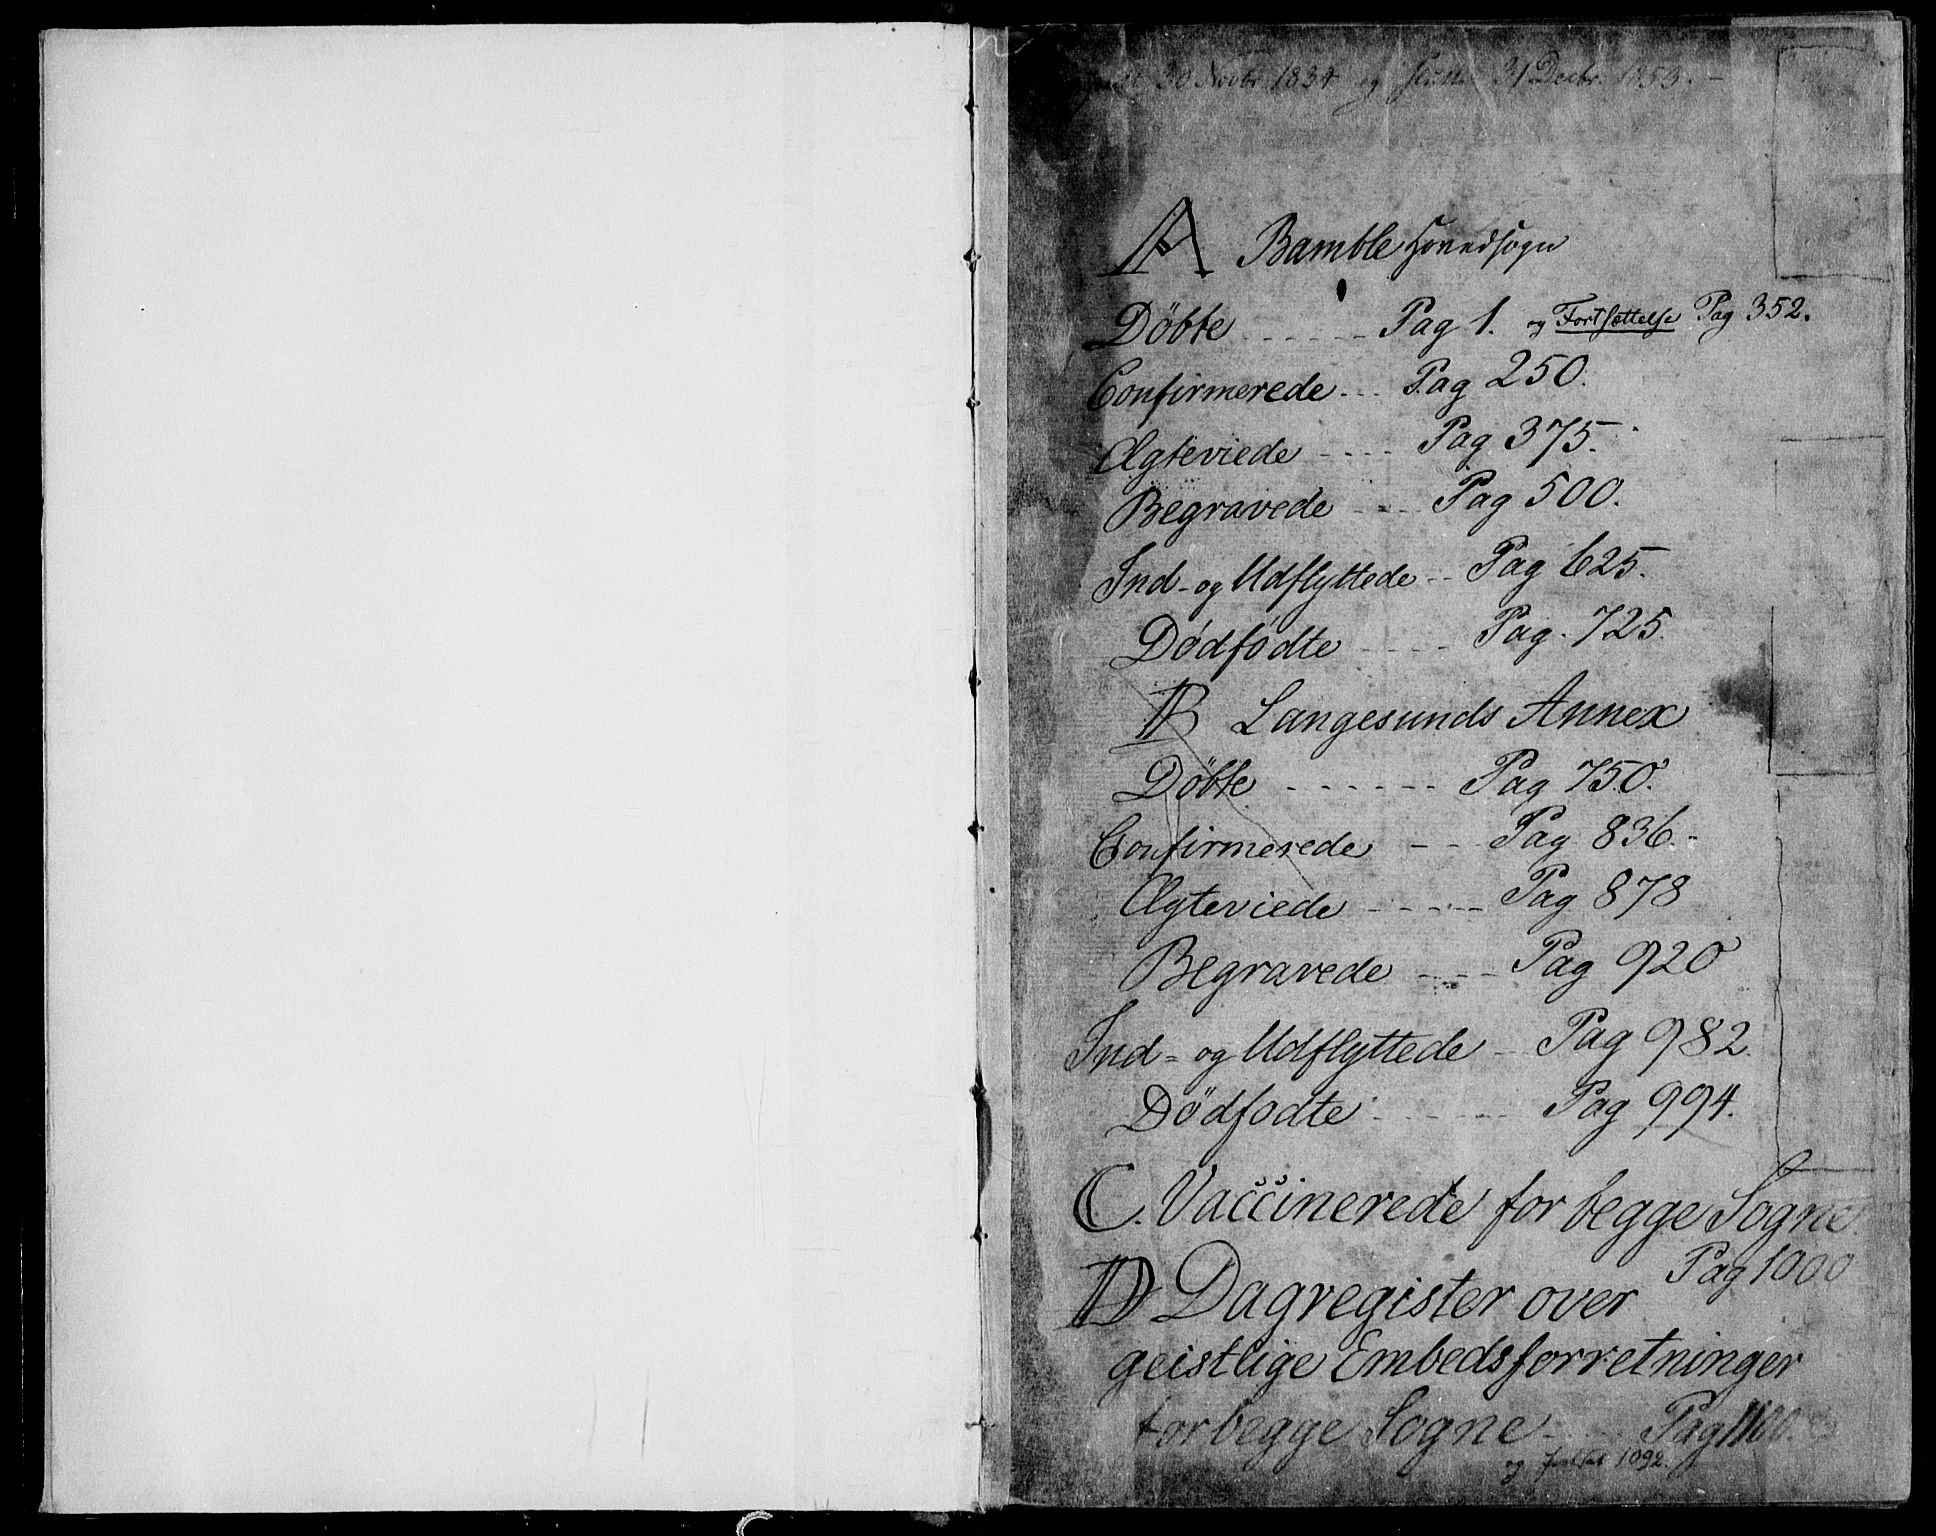 30 Novbr 1834 og 31 Decbr. 1853. -
A Bamble Hovedsogn
Döbte ...... Pag 1. og Fortsættelse Pag 352.
Confirmerede ... Pag 250.
Ægteviede .... Pag 375.
Begravede .... Pag 500.
Ind- og Udflyttede .. Pag 625.
Dödfödte .... Pag. 725.
B Langesunds Annex
Döbte ....... Pag 750.
Confirmerede - - Pag 836.
Ægteviede ..... Pag 878
Begravede .... Pag 920
Ind= og Udflyttede .. Pag 982.
Dödfodte ...... Pag 994.
C. Vaccinerede for begge Sogne.
Pag 1000
D Dagregister over
geistlige Embedsforretninger
for begge Sogne .... Pag 1100.
og 1092.